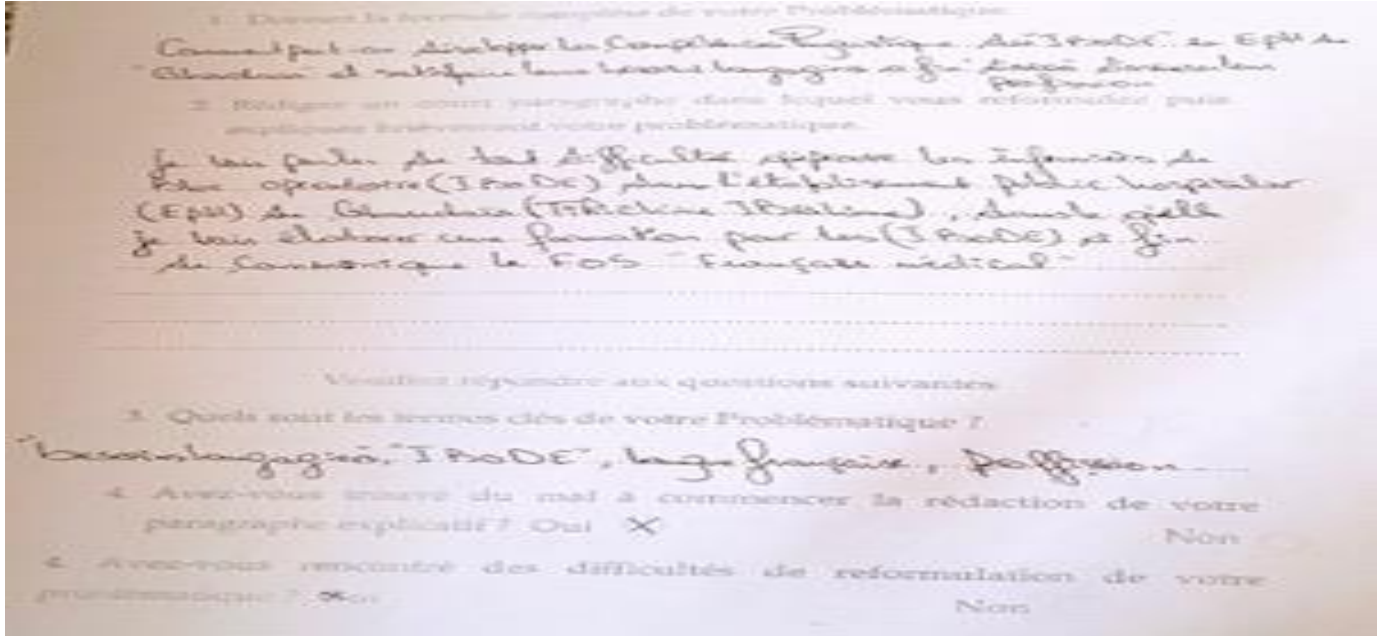 1. Donnez la formule complète de votre Problématique.
Comment peut on développer les Compétence linguistique des "IBODE" de EPH de
et satisfaire leurs besoins langagiers a fin
profession
2. Rédigez un court paragraphe dans lequel vous reformulez puis
expliquez brièvement votre problématique.
je vais parler de tout difficulté les infermiers de
bloc opératoire (IBODE) dans l'établissement public hospitalier
(EPH) de
je vais élaborer une formation pour les (IBODE) a fin
de Communique le FOS "Français médical"
Veuillez répondre aux questions suivantes
3. Quels sont les termes clés de votre Problématique ?
"besoins langagiers", "IBODE", langue française, Poffission
4. Avez-vous trouvé du mal à commencer la rédaction de votre
paragraphe explicatif ? Oui X Non
4. Avez-vous rencontré des difficultés de reformulation de votre
problématique ? Non